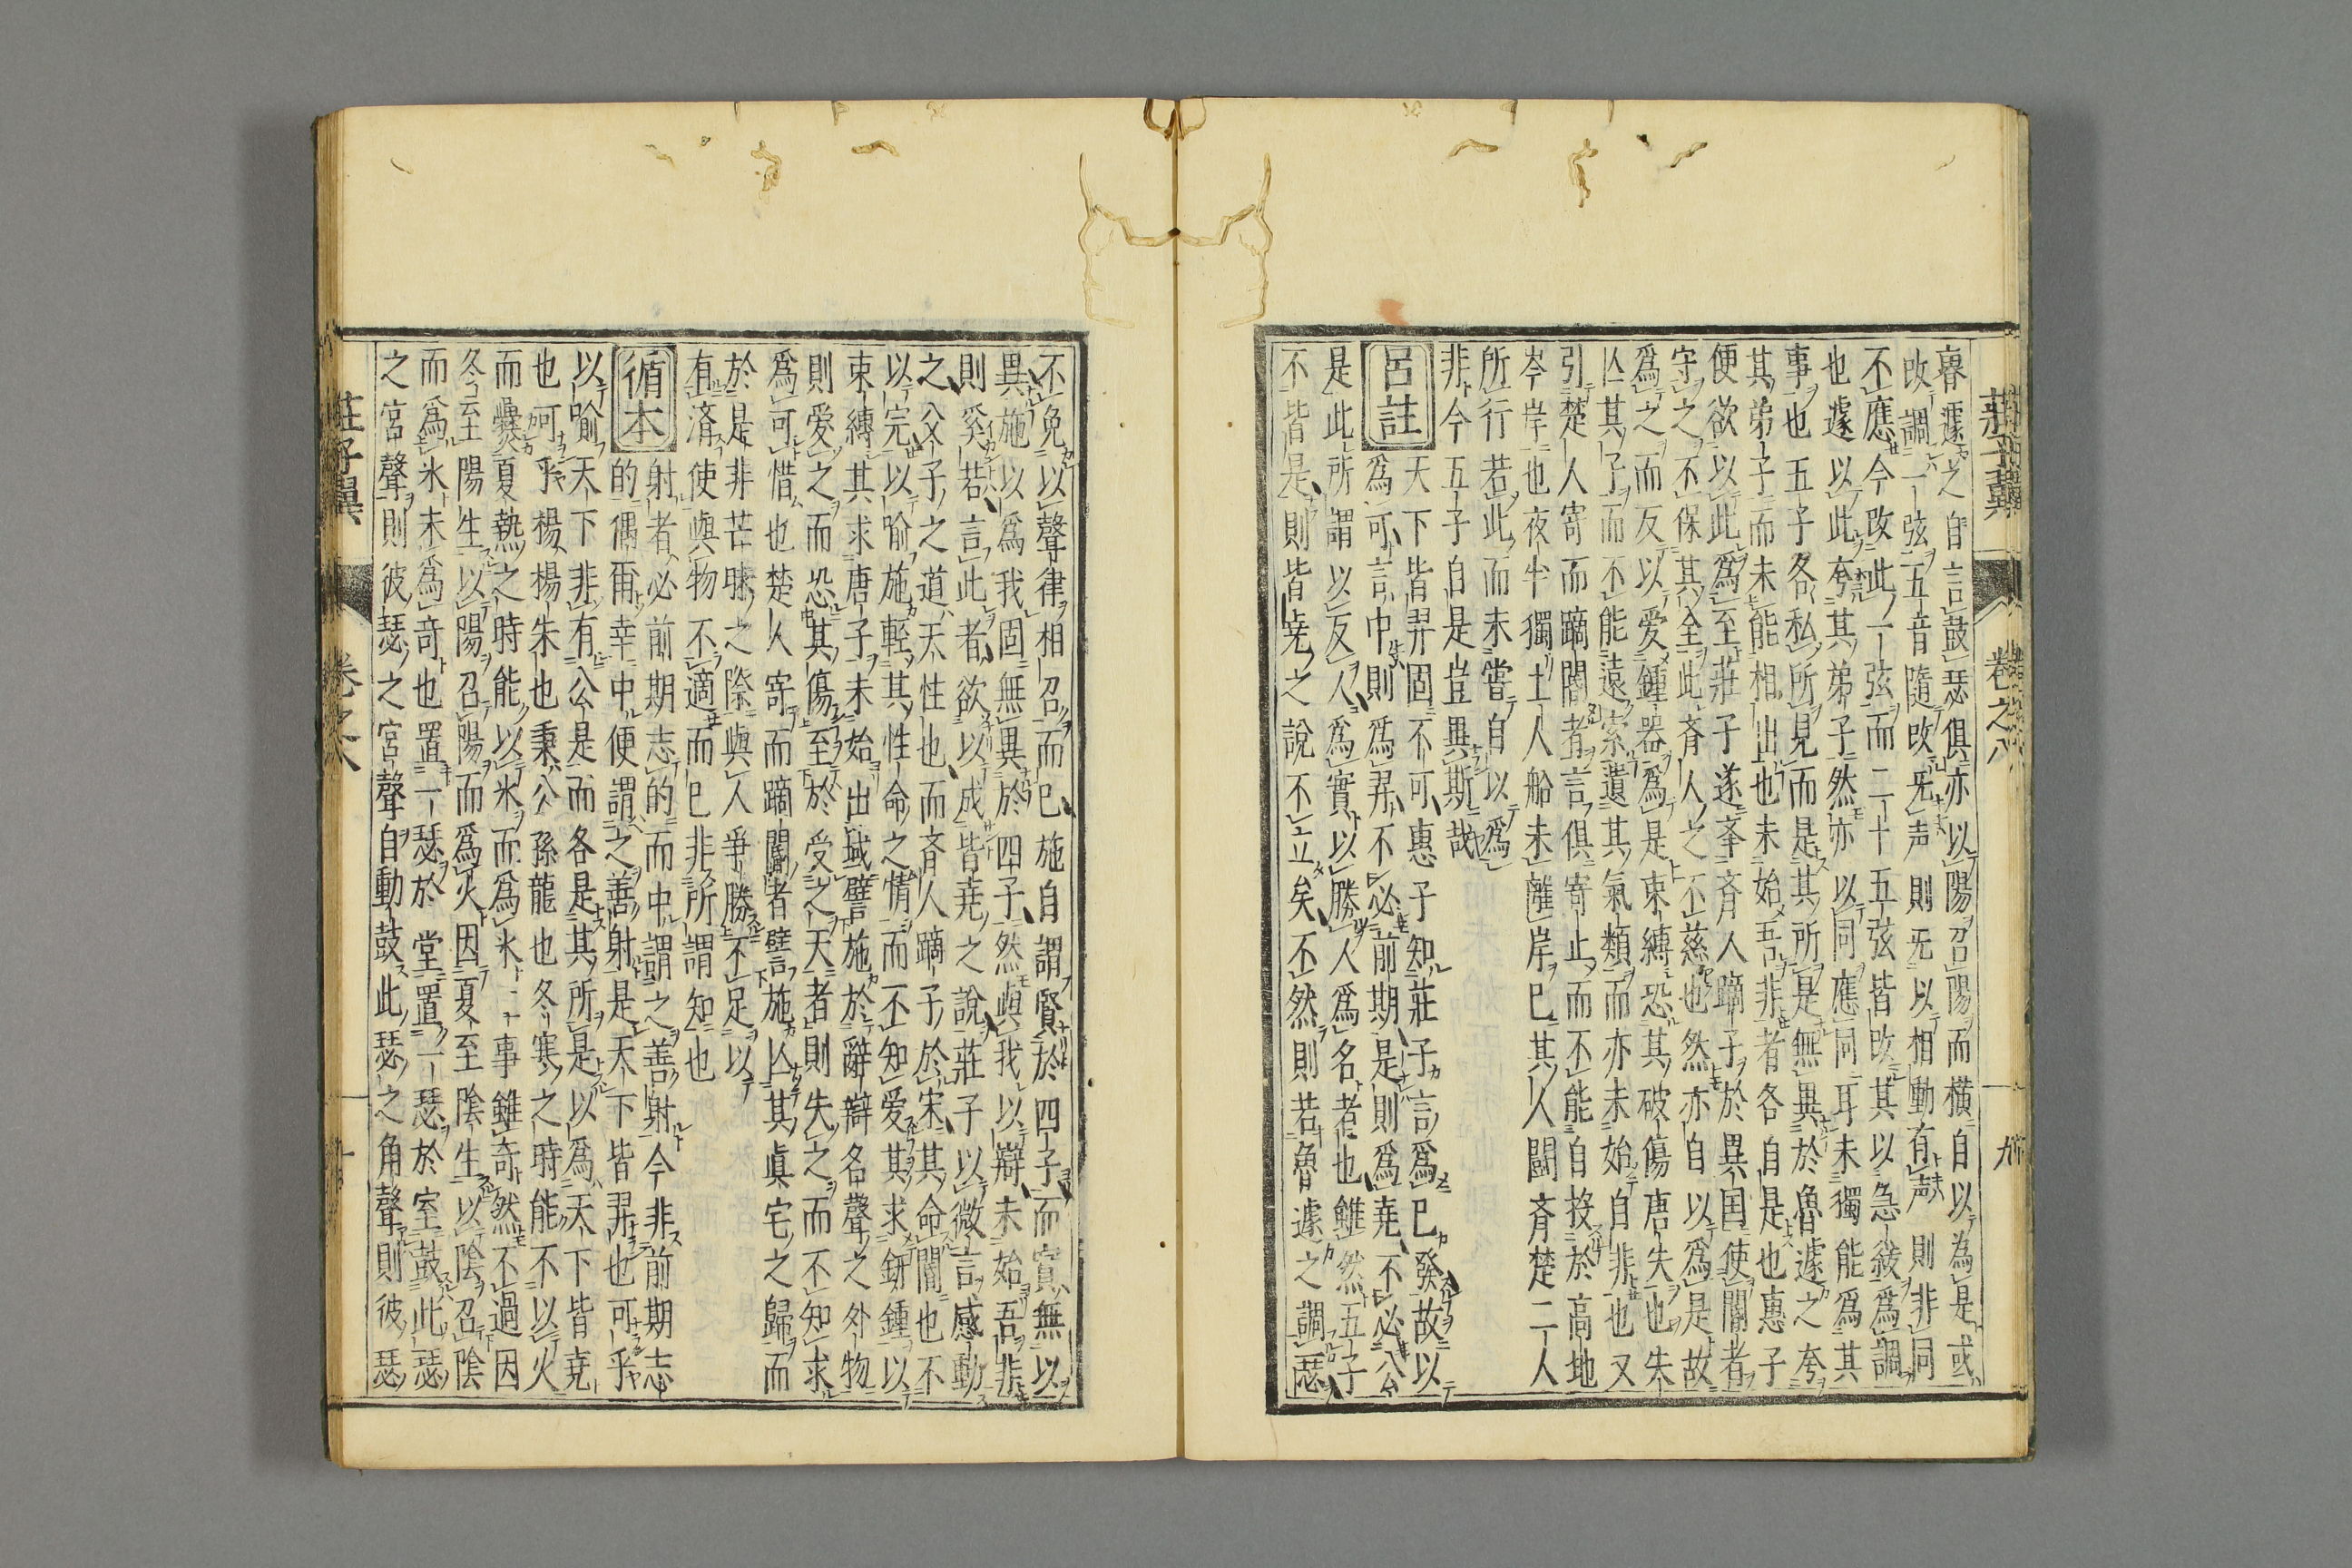 莊子翼　卷之八　九
魯遽之自言鼓瑟俱亦以陽召陽而横自以為是或
改調一弦五音隨改旡声則旡以相動有声則非同
不應今改此一弦而二十五弦皆改其以急緩爲調
也遽以此夸其弟子然亦以同應同耳未獨能爲其
事也五子各私所見而是其所是無異於魯遽之夸
其弟子而未能相出也未始吾非者各自是也惠子
便欲以此爲至莊子遂舉斉人蹢子於異国使閽者
守之不保其全此斉人之不慈也然亦自以爲是故
爲之而反以愛鍾器爲是束縛恐其破傷唐失也失
亾其子而不能遠索遺其氣類而亦未始自非也又
引楚人寄而蹢閽者言俱寄止而不能自投於高地
岑岸也夜半獨上人船未離岸已其人鬪斉楚二人
所行若此而未嘗自以爲
非今五子自是豈異斯哉
呂註　天下皆羿固不可惠子知莊子言爲已發故以
爲可言中則爲羿不必前期是則爲堯不必公
是此所謂以反人爲實以勝人爲名者也雖然五子
不皆是則皆堯之說不立矣不然則若魯遽之調瑟
不免以聲律相召而已施自謂賢於四子而實無以
異施以爲我固無異於四子然與我以辯未始吾非
則奚若言此者欲以成皆堯之說莊子以微言感動
之父子之道天性也而斉人蹢子於宋其命閽也不
以完以喻施輕其性命之情而不知愛其求鈃鍾以
束縛其求唐子未始出域譬施於辭辯名聲之外物
則愛之而恐其傷至於受之天者則失之而不知求
爲可惜也楚人寄而蹢閽者譬施亾其眞宅之歸而
於是非芒昧之際與人爭勝不足以
有済使與物不適而已非所謂知也
循本　射者必前期志的而中謂之善射今非前期志
的偶爾幸中便謂之善射是天下皆羿也可乎
以喻天下非有公是而各是其所是以爲天下皆堯
也可乎楊楊朱也秉公孫龍也冬寒之時能不以火
而爨夏熱之時能以氷而爲氷二事雖奇然不過因
冬至陽生以陽召陽而爲火因夏至陰生以陰召陰
而爲氷未爲奇也置一瑟於堂置一瑟於室鼓此瑟
之宮聲則彼瑟之宮聲自動鼓此瑟之角聲則彼瑟
莊子翼　卷之八　十